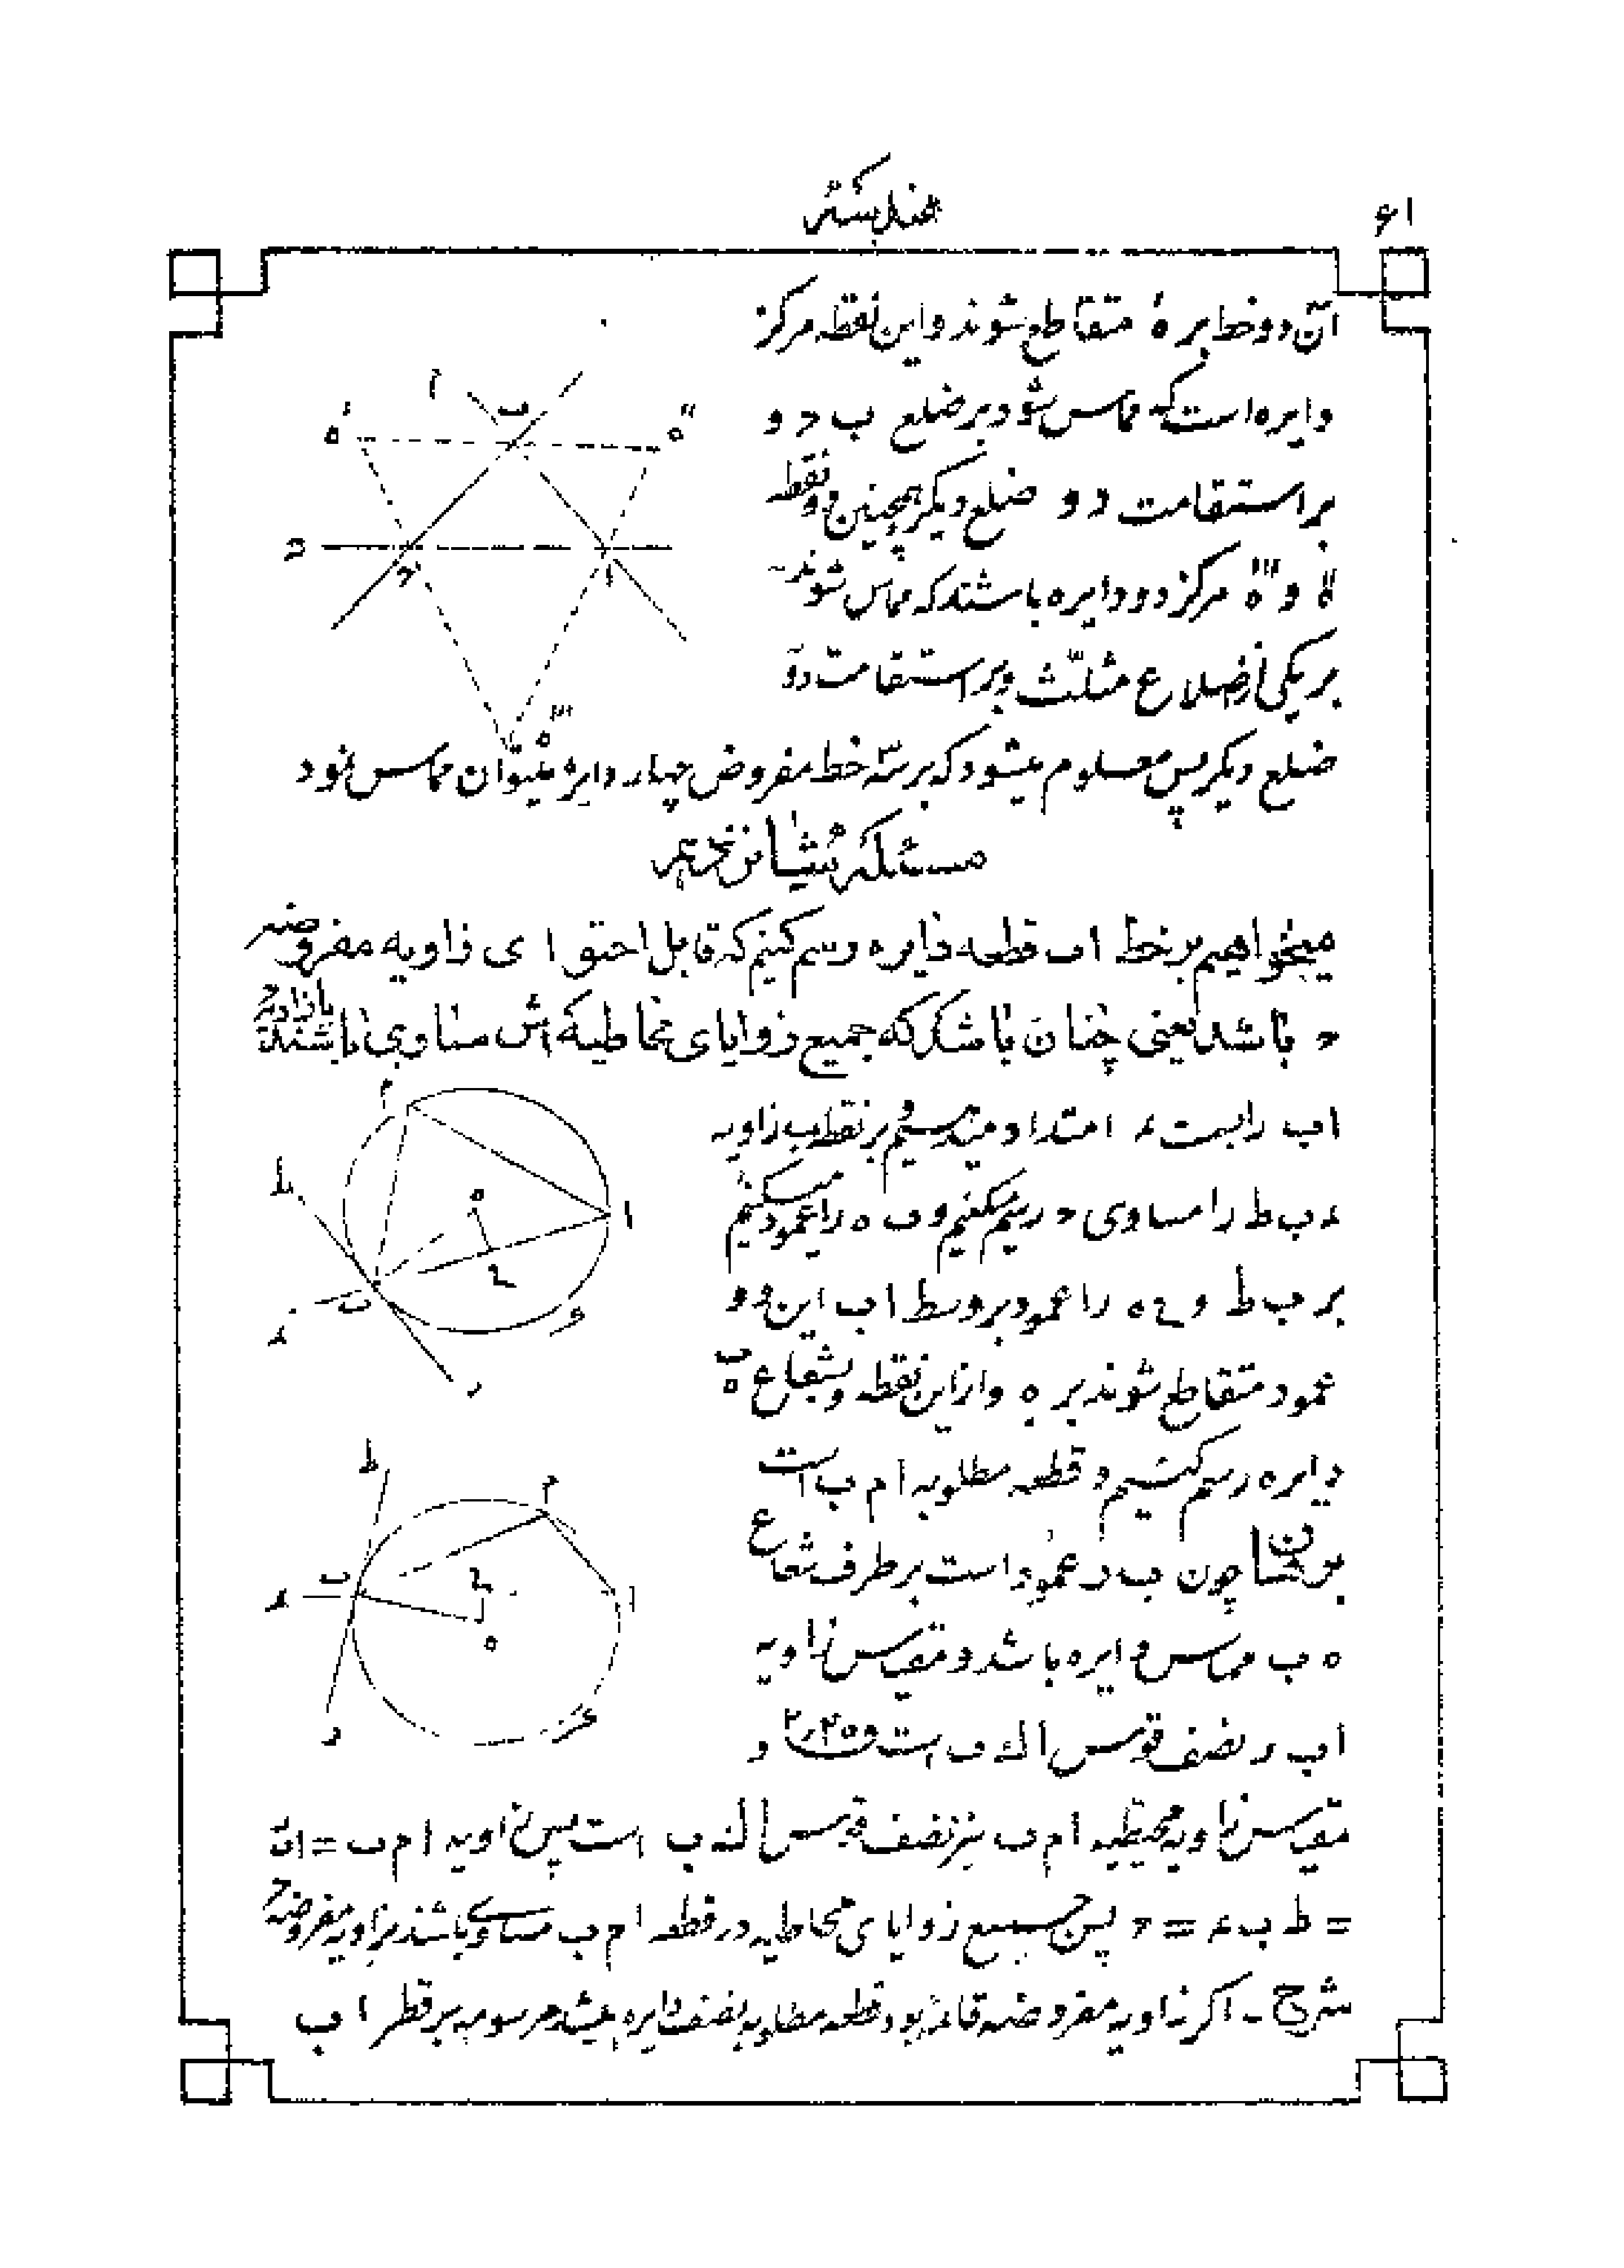 ۶۱
هندسه
آن دو خط بر ہ́ متقاطع شوند و این نقطه مرکز
دایره است که مماس شود بر ضلع ب ح و
بر استقامت دو ضلع دیگر همچنین دو نقطه
ہ″ و ہ‴ مرکز دو دایره باشند که مماس شوند
بر یکی از اضلاع مثلّث و بر استقامت دو
ضلع دیگر پس معلوم میشود که بر سه خط مفروض چهار دایره میتوان مماس نمود
مسئله شانزدهم
میخواهیم بر خط اب قطعه دایره رسم کنیم که قابل احتوای زاویه مفروضه
ح باشد یعنی چنان باشد که جمیع زوایای محاطیه اش مساوی با زاویه ح باشند
اب را بسمت ء امتداد میدهیم بر نقطه ب زاویه
ء ب ط را مساوی ح رسم میکنیم و ب ه را عمود میکنیم
بر ب ط و ع ه را عمود بر وسط اب این دو
عمود متقاطع شوند بر ه و از این نقطه و بشعاع ه ب
دایره رسم کنیم و قطعه مطلوبه ام ب است
برهان چون ب ر عمود است بر طرف شعاع
ه ب مماس دایره باشد و مقیاس زاویه
اب ر نصف قوس اک ب است و
مقیاس زاویه محیطیه ام ب نیز نصف قوس اک ب است پس زاویه ام ب = اب ر
= ط ب ء = ح پس جمیع زوایای محاطیه در قطعه ام ب مساوی باشند بزاویه مفروضه ح
شرح ـ اگر زاویه مفروضه قائمه بود قطعه مطلوبه نصف دایره میشد مرسومه بر قطر اب